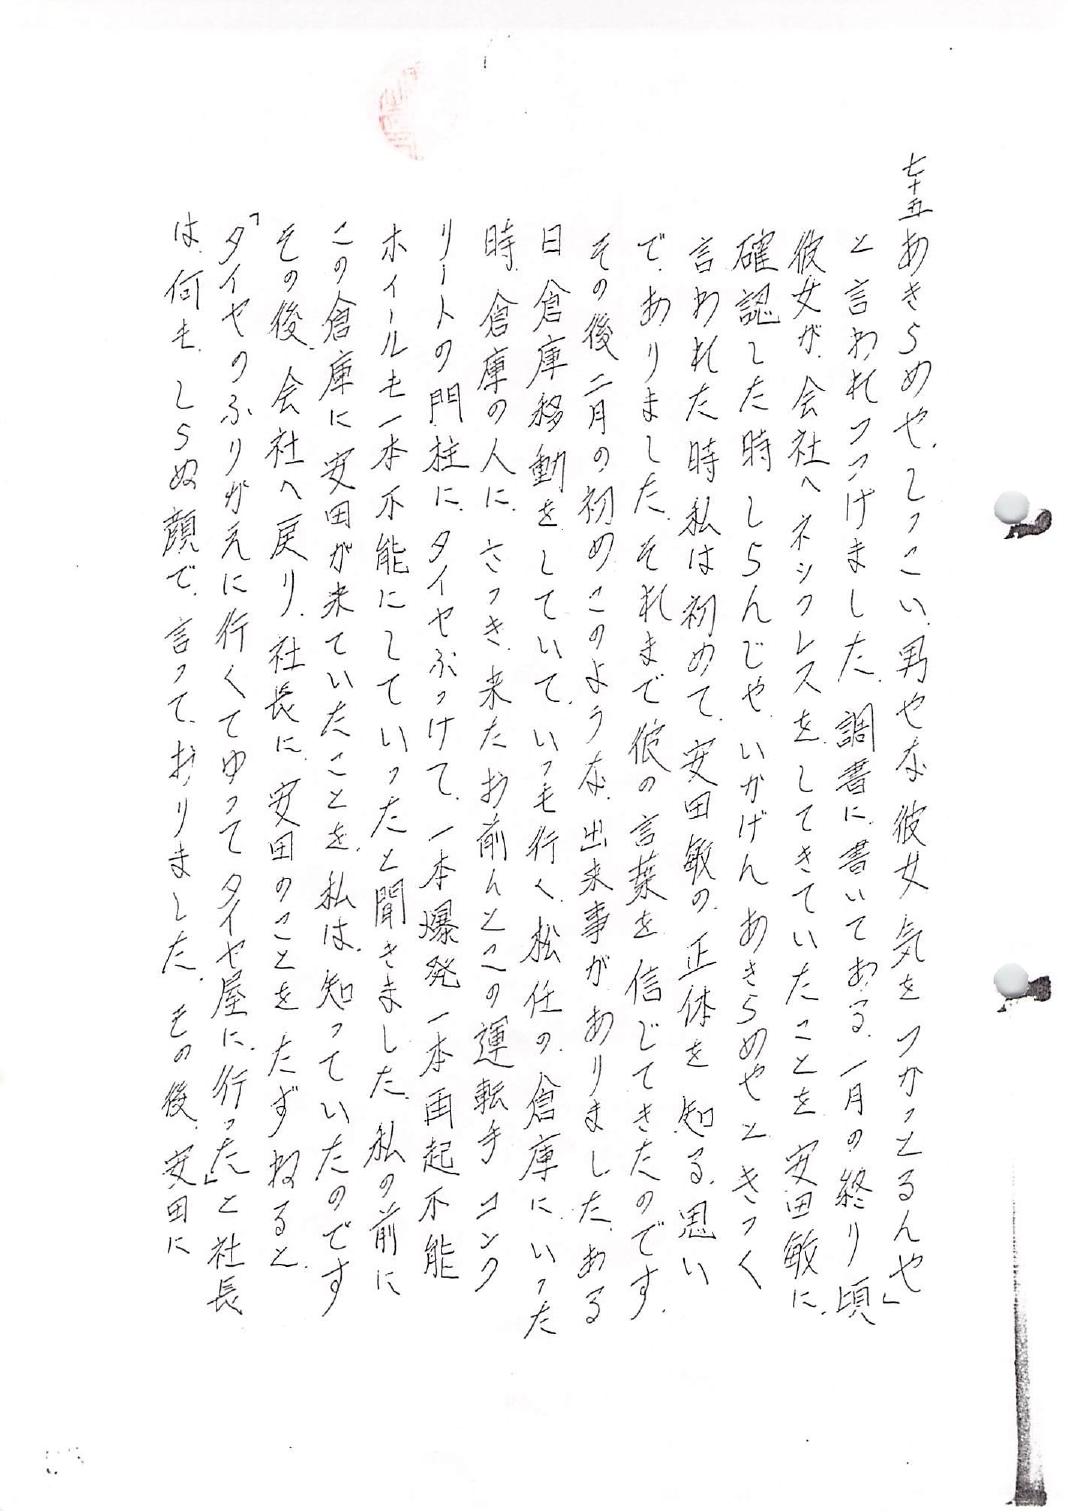 七十五 あきらめや、しっこい、男やな 彼女 気を つかっとるんや」
と 言われつづけました、調書に、書いてある、一月の終り頃
彼女が、会社へ ネックレスを、してきていたことを 安田敏に、
確認した時 しらんじゃ、いかげん あきらめやと、きつく
言われた時 私は初めて、安田敏の、正体を 知る、思い
で、ありました、それまで 彼の言葉を 信じてきたのです、
その後 二月の初め このような、出来事が ありました、ある
日 倉庫移動をしていて、いつも行く、松任の、倉庫に、いった
時、倉庫の人に、さっき、来た お前んとこの運転手 コンク
リートの門柱に、タイヤぶっけて、一本爆発 一本再起不能
ホィールも一本不能にしていったと聞きました、私の前に
この倉庫に 安田が来ていたことを、私は、知っていたのです
その後、会社へ戻り、社長に、安田のことを たずねると、
「タイヤのふりがえに行くてゆって タイヤ屋に、行った」と 社長
は、何も、しらぬ顔で、言って、おりました、その後、安田に